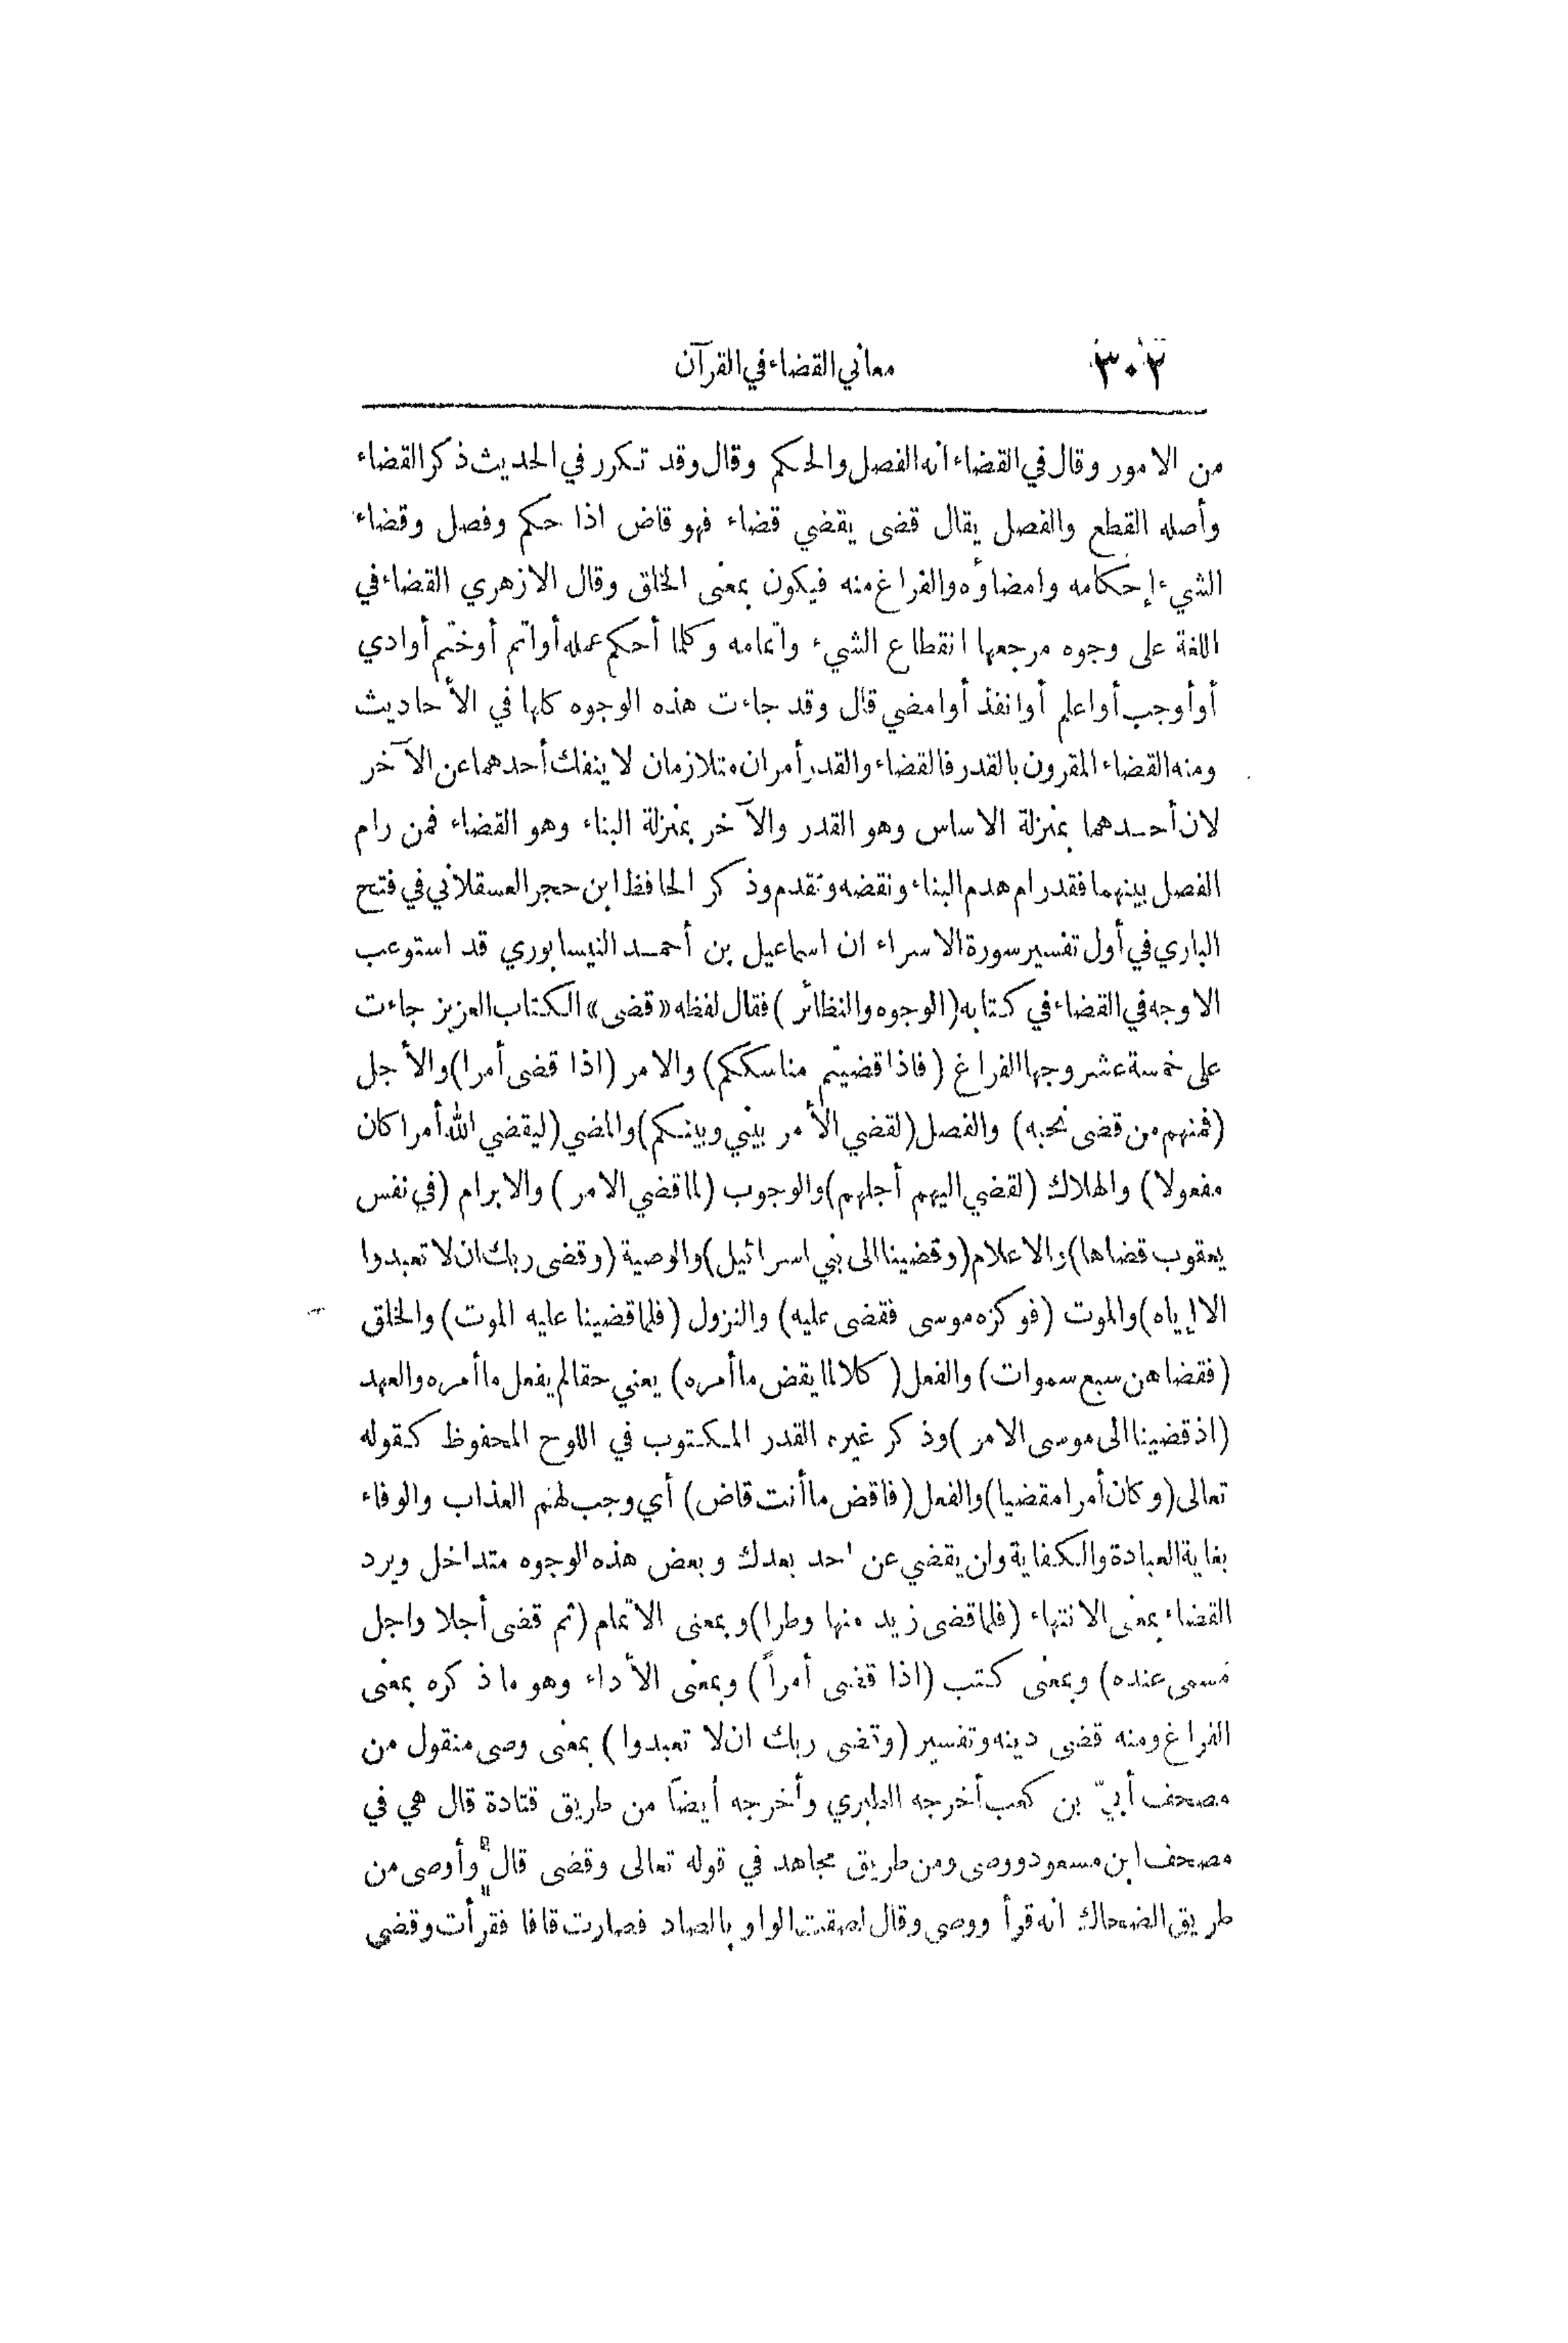 ٣٠٢ معاني القضاء في القرآن
من الامور وقال في القضاء انه الفصل والحكم وقال وقد تكرر في الحديث ذكر القضاء
وأصله القطع والفصل يقال قضى يقضي قضاء فهو قاض اذا حكم وفصل وقضاء
الشيء إحكامه وامضاؤه والفراغ منه فيكون بمعنى الخلق وقال الازهري القضاء في
اللغة على وجوه مرجعها انقطاع الشيء واتمامه وكلما أحكم عمله أواتم أوختم أوادي
أوأوجب أواعلم أوانفذ أوامضي قال وقد جاءت هذه الوجوه كلها في الأحاديث
ومنه القضاء المقرون بالقدر فالقضاء والقدر أمران متلازمان لا ينفك أحدهما عن الآخر
لان أحدهما بمنزلة الاساس وهو القدر والآخر بمنزلة البناء وهو القضاء فمن رام
الفصل بينهما فقد رام هدم البناء ونقضه وتقدم وذكر الحافظ ابن حجر العسقلاني في فتح
الباري في أول تفسير سورة الاسراء ان اسماعيل بن أحمد النيسابوري قد استوعب
الاوجه في القضاء في كتابه (الوجوه والنظائر) فقال لفظه «قضى» الكتاب العزيز جاءت
على خمسة عشر وجها الفراغ (فاذا قضيتم مناسككم) والامر (اذا قضى أمرا) والأجل
(فمنهم من قضى نحبه) والفصل (لقضي الأمر بيني وبينكم) والمضي (ليقضي الله أمرا كان
مفعولا) والهلاك (لقضي اليهم أجلهم) والوجوب (لما قضي الامر) والابرام (في نفس
يعقوب قضاها) والاعلام (وقضينا الى بني اسرائيل) والوصية (وقضى ربك ان لا تعبدوا
الا إياه) والموت (فوكزه موسى فقضى عليه) والنزول (فلما قضينا عليه الموت) والخلق
(فقضاهن سبع سموات) والفعل (كلا لما يقض ما أمره) يعني حقا لم يفعل ما أمره والعهد
(اذ قضينا الى موسى الامر) وذكر غيره القدر المكتوب في اللوح المحفوظ كقوله
تعالى (وكان أمرا مقضيا) والفعل (فاقض ما أنت قاض) أي وجب لهم العذاب والوفاء
بغاية العبادة والكفاية ولن يقضي عن احد بعدك وبعض هذه الوجوه متداخل ويرد
القضاء بمعنى الانتهاء (فلما قضى زيد منها وطرا) وبمعنى الاتمام (ثم قضى أجلا واجل
مسمى عنده) وبمعنى كتب (اذا قضى أمراً) وبمعنى الأداء وهو ما ذكره بمعنى
الفراغ ومنه قضى دينه وتفسير (وقضى ربك ان لا تعبدوا) بمعنى وصى منقول من
مصحف أبيّ بن كعب أخرجه الطبري وأخرجه أيضاً من طريق قتادة قال هي في
مصحف ابن مسعود ووصى ومن طريق مجاهد في قوله تعالى وقضى قال وأوصى من
طريق الضحاك انه قرأ ووصى وقال لصقت الواو بالصاد فصارت قافا فقرأت وقضى